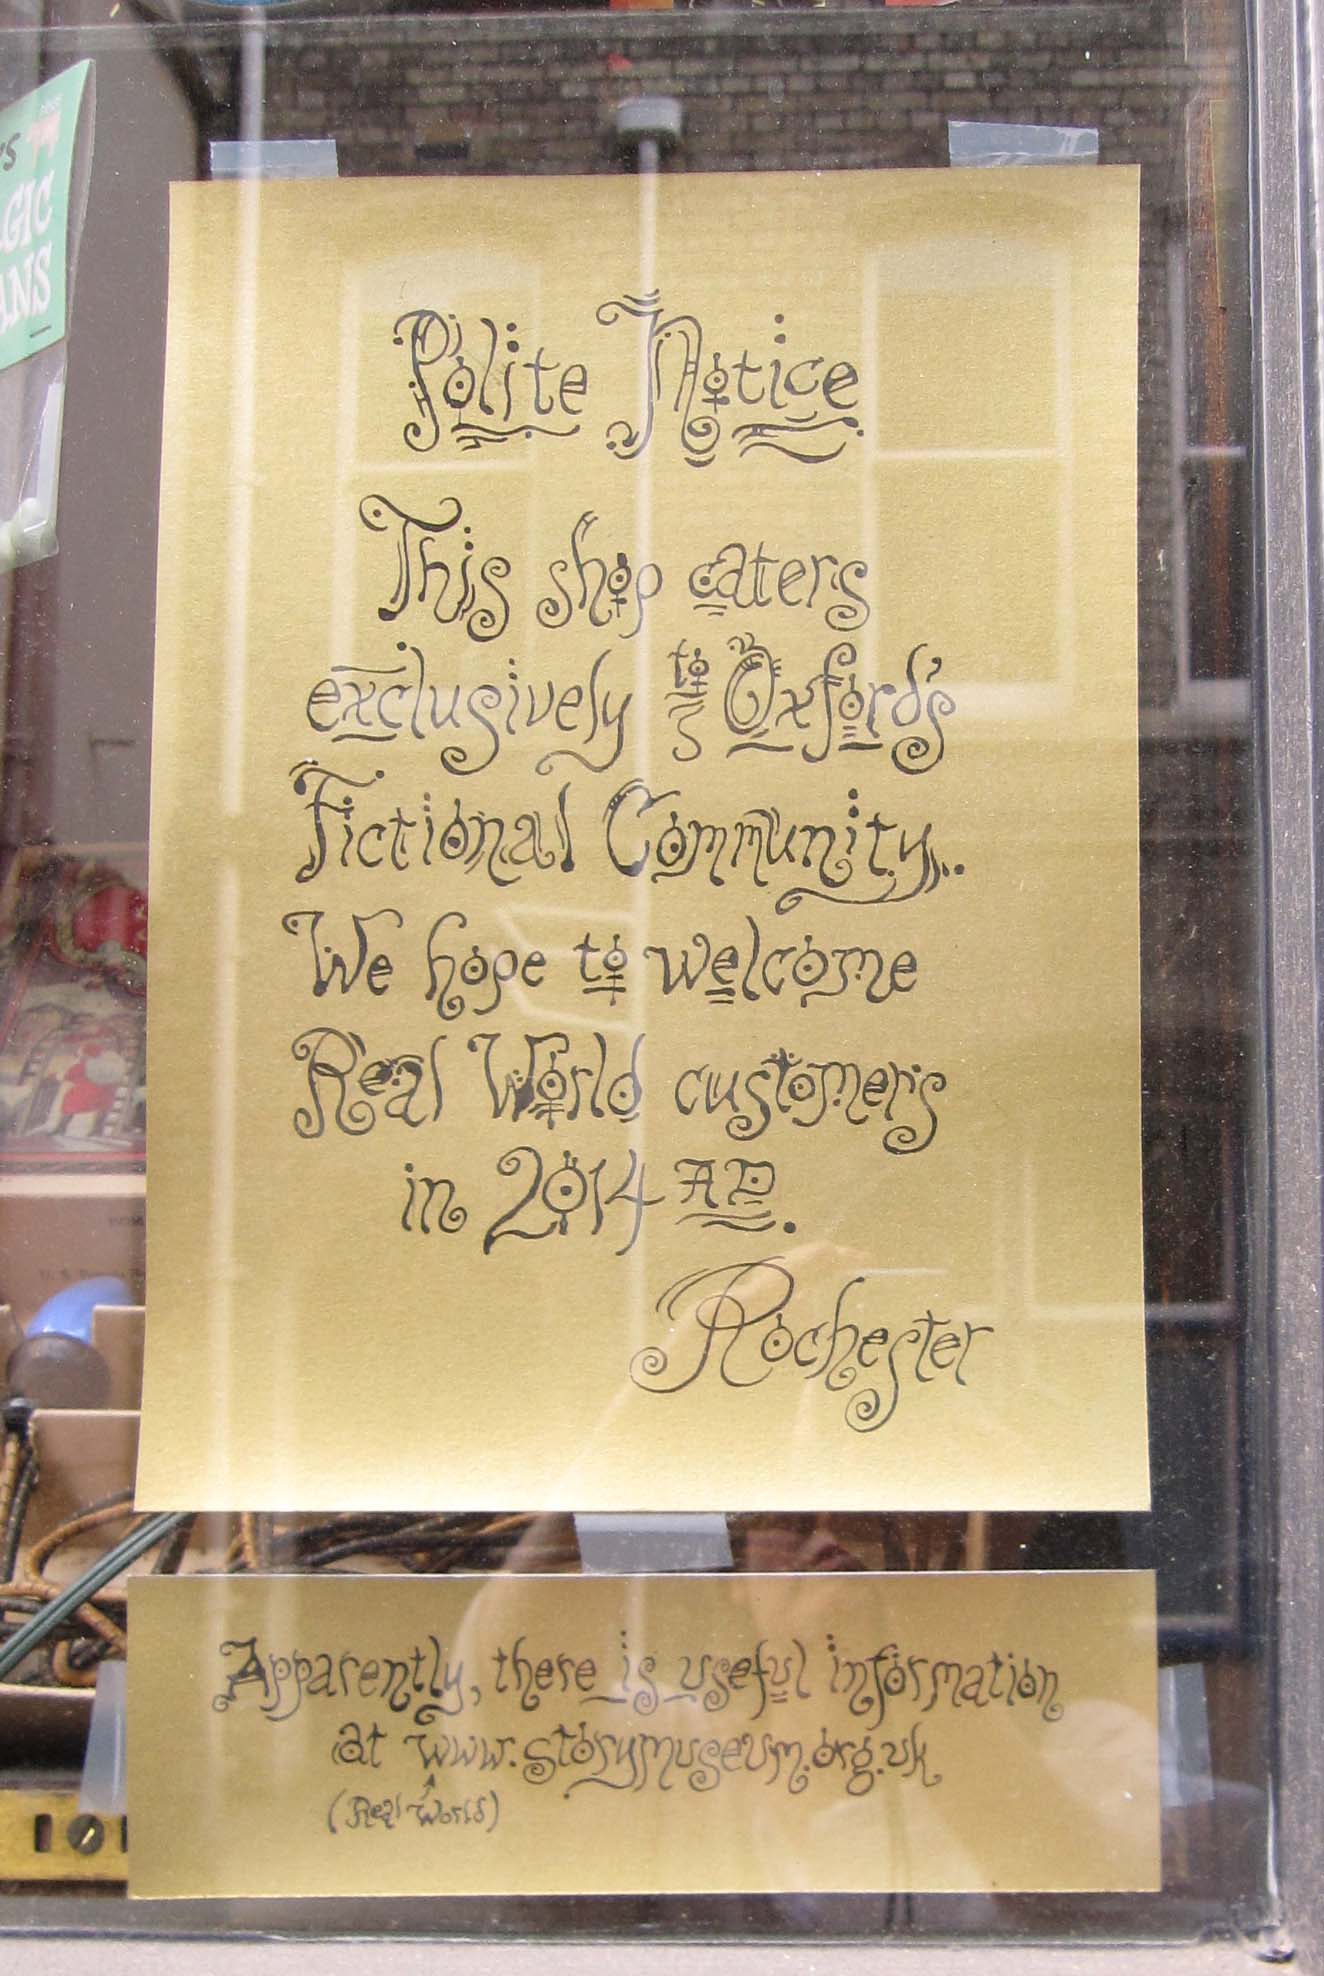 Polite Notice
This shop caters
exclusively to Oxford's
Fictional Community...
We hope to welcome
Real World customers
in 2014 AD.
Rochester
Apparently, there is useful information
at www.storymuseum.org.uk
(Real World)